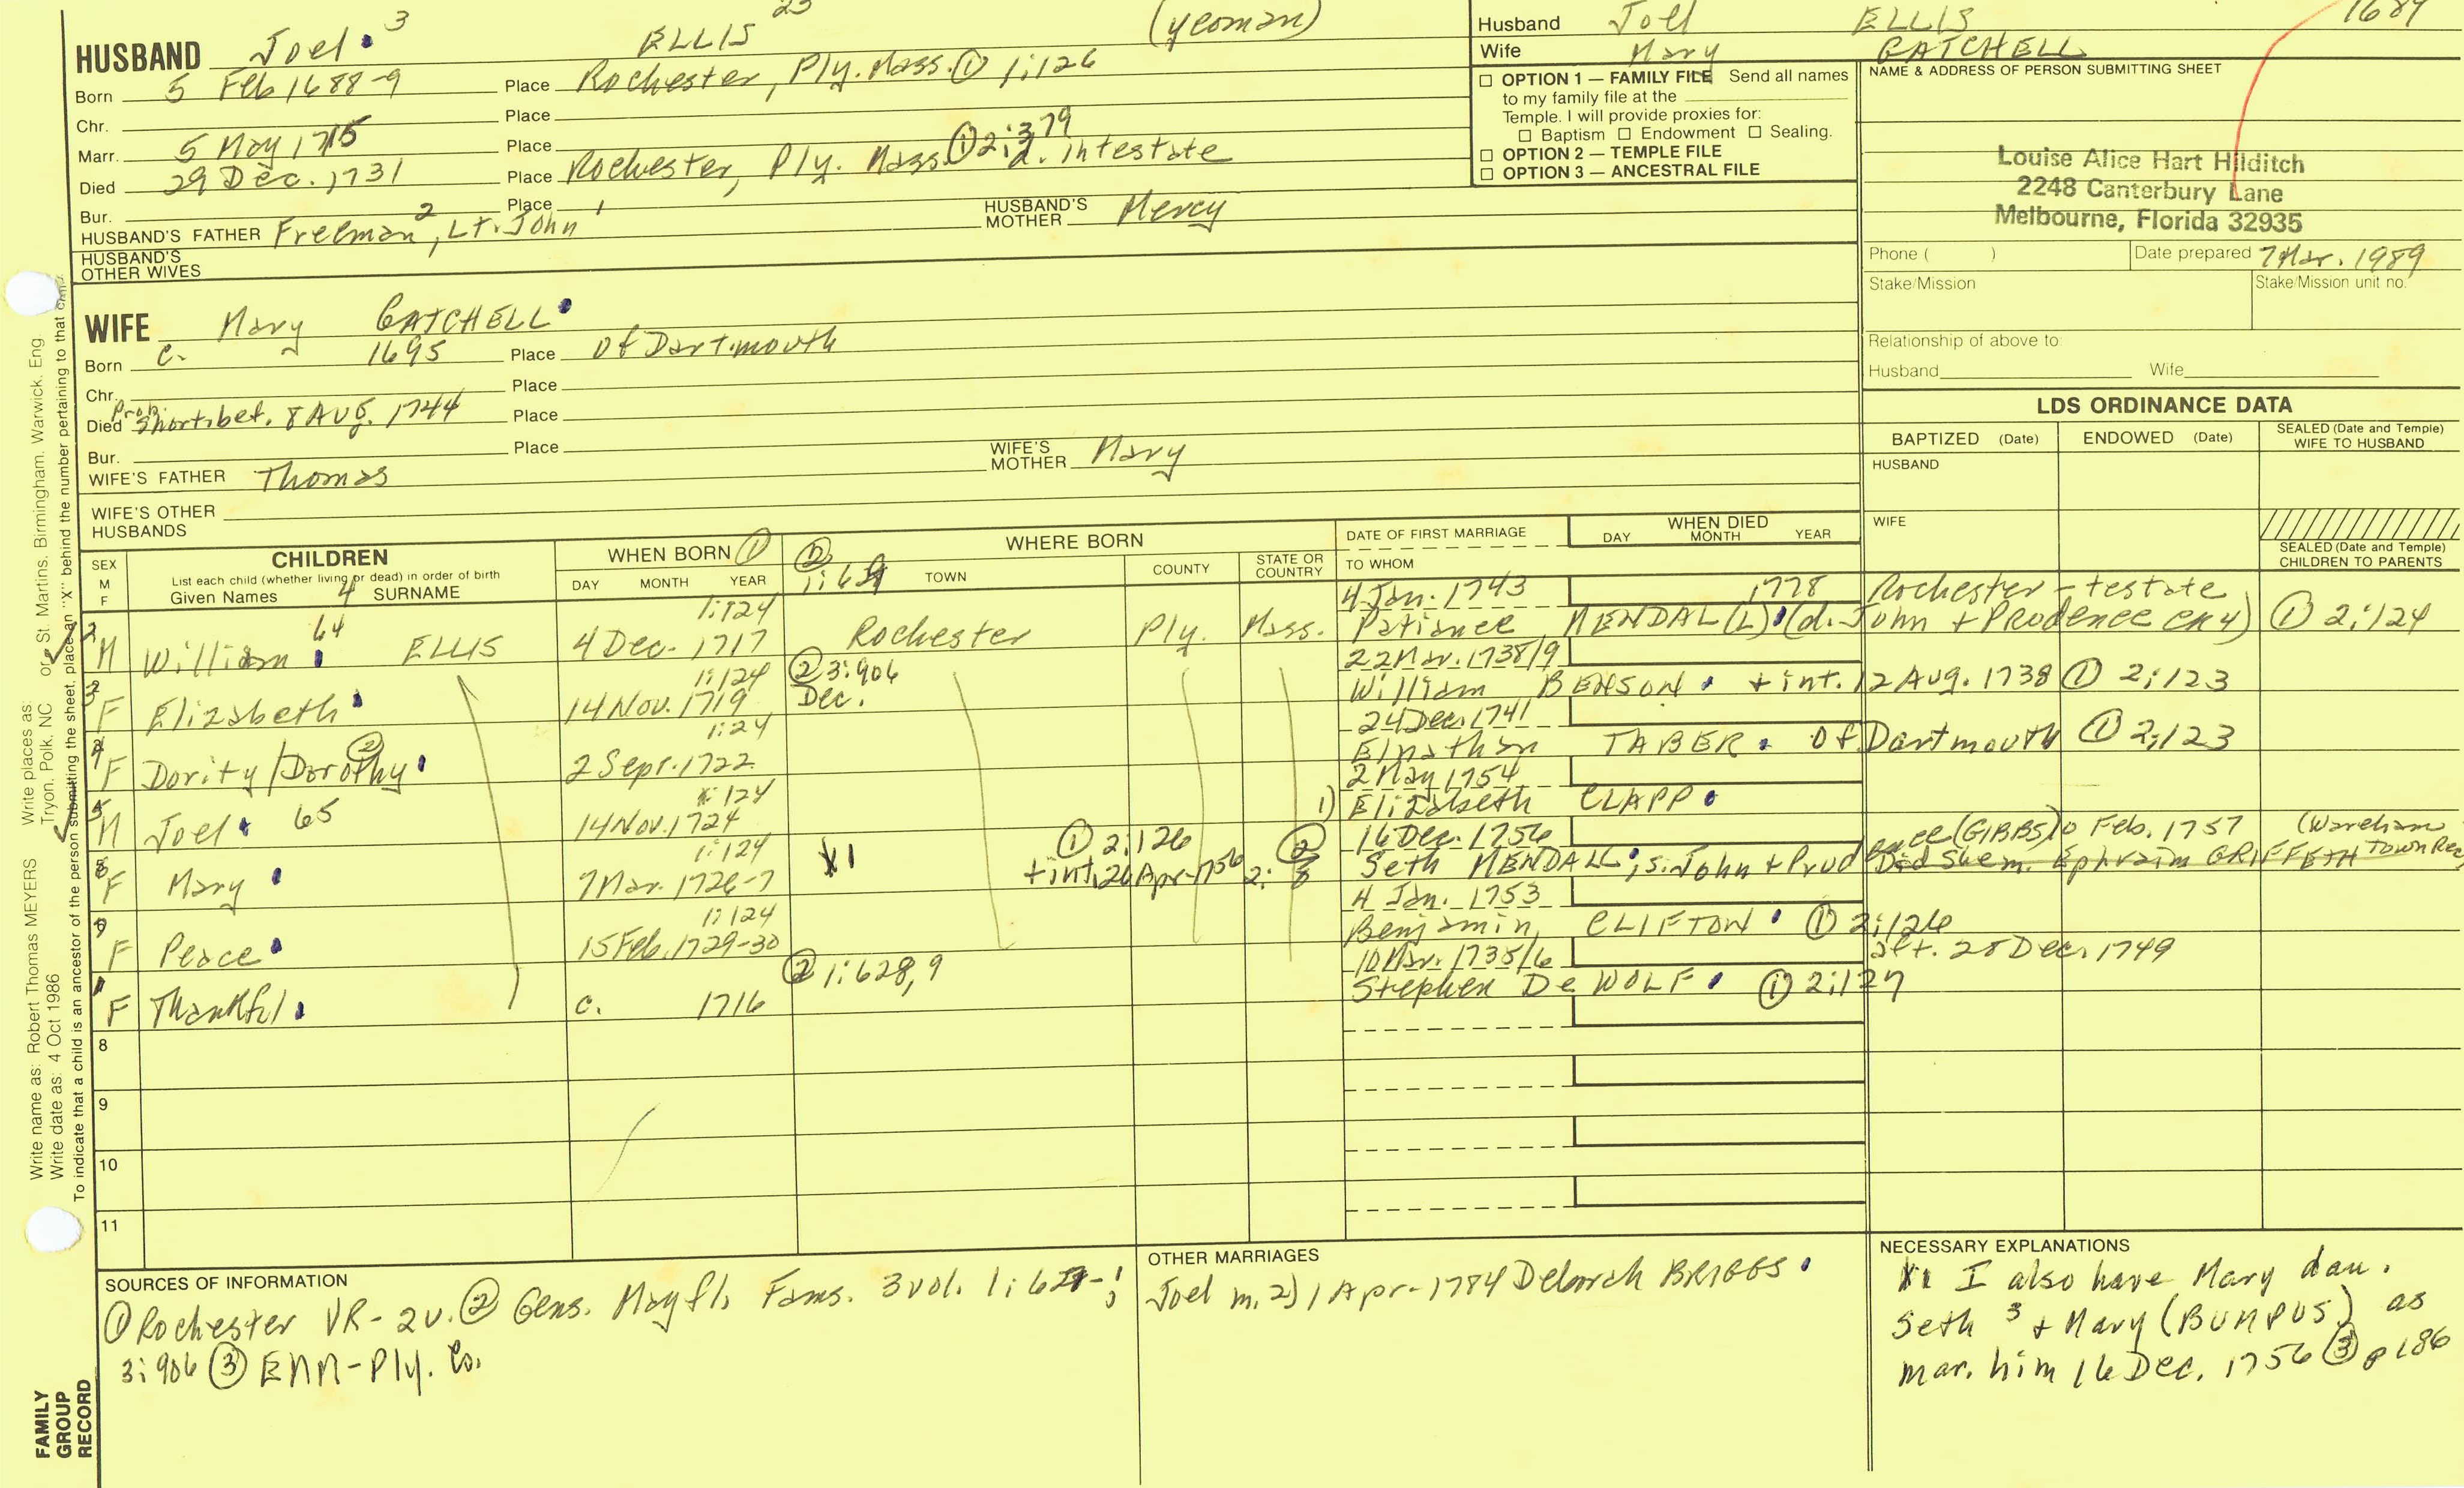 HUSBAND Joel 3 ELLIS 23 (yeoman)
Born 5 Feb 1688-9 Place Rochester, Ply. Mass. ① 1:126
Chr. Place
Marr. 5 May 1715 Place ① 2:379
Died 29 Dec. 1731 Place Rochester, Ply. Mass. d. intestate
Bur. Place
HUSBAND'S FATHER Freeman 2, Lt. John 1 HUSBAND'S MOTHER Mercy
HUSBAND'S OTHER WIVES
Husband Joel ELLIS 1689
Wife Mary GATCHELL
☐ OPTION 1 — FAMILY FILE Send all names
to my family file at the
Temple. I will provide proxies for:
☐ Baptism ☐ Endowment ☐ Sealing.
☐ OPTION 2 — TEMPLE FILE
☐ OPTION 3 — ANCESTRAL FILE
NAME & ADDRESS OF PERSON SUBMITTING SHEET
Louise Alice Hart Hilditch
2248 Canterbury Lane
Melbourne, Florida 32935
Phone ( ) Date prepared 7 Mar. 1989
Stake/Mission Stake/Mission unit no.
Relationship of above to:
Husband Wife
WIFE Mary GATCHELL
Born c. 1695 Place Of Dartmouth
Chr. Place
Died Prob. Short. bef. 8 Aug. 1744 Place
Bur. Place
WIFE'S FATHER Thomas WIFE'S MOTHER Mary
WIFE'S OTHER HUSBANDS
LDS ORDINANCE DATA
BAPTIZED (Date) ENDOWED (Date) SEALED (Date and Temple) WIFE TO HUSBAND
HUSBAND
WIFE
SEALED (Date and Temple) CHILDREN TO PARENTS
SEX M F
CHILDREN
List each child (whether living or dead) in order of birth
Given Names 4 SURNAME
WHEN BORN ①
DAY MONTH YEAR
② WHERE BORN
TOWN COUNTY STATE OR COUNTRY
DATE OF FIRST MARRIAGE
TO WHOM
WHEN DIED
DAY MONTH YEAR
1:124 4 Jan. 1743 1778 Rochester - testate
2 M William 64 ELLIS 4 Dec. 1717 Rochester Ply. Mass. Patience MENDAL(L) (d. John + Prudence ) ① 2:124
1:124 ② 3:906 22 Mar. 1738/9
3 F Elizabeth 14 Nov. 1719 Dec. William BENSON + int. 12 Aug. 1738 ① 2:123
1:24 24 Dec. 1741
4 F Dority/Dorothy ② 2 Sepr. 1722 Elnathan TABER Of Dartmouth ① 2:123
1:124 2 May 1754
5 M Joel 65 14 Nov. 1724 1) Elizabeth CLAPP
1:124 X1 ① 2:126 ② 16 Dec. 1756
F Mary 7 Mar. 1726-7 + int. 26 Apr. 1756 Seth MENDALL; s. John + Prudence (GIBBS) Feb. 1757 (Wareham Town Rec
Did She m. Ephraim GRIFFETH
1:124 4 Jan. 1753
F Peace 15 Feb. 1729-30 Benjamin CLIFTON ① 2:126
② 1:628,9 10 Mar. 1735/6 aft. 25 Dec. 1749
1 F Thankful c. 1716 Stephen De WOLF ① 2:127
8
9
10
11
SOURCES OF INFORMATION
① Rochester VR - 2v. ② Gens. Mayfl. Fams. 3 vol.
3:906 ③ EMM - Ply. Co.
OTHER MARRIAGES
Joel m. 2) 1 Apr. 1784 Deborah BRIGGS
NECESSARY EXPLANATIONS
X1 I also have Mary dau.
Seth 3 + Mary (BUMPUS) as
mar. him 16 Dec. 1756 ③ p 186
Write name as: Robert Thomas MEYERS Write places as: Tryon, Polk, NC or St. Martins, Birmingham, Warwick, Eng.
Write date as: 4 Oct 1986
To indicate that a child is an ancestor of the person submitting the sheet, place an "X" behind the number pertaining to that child.
FAMILY GROUP RECORD